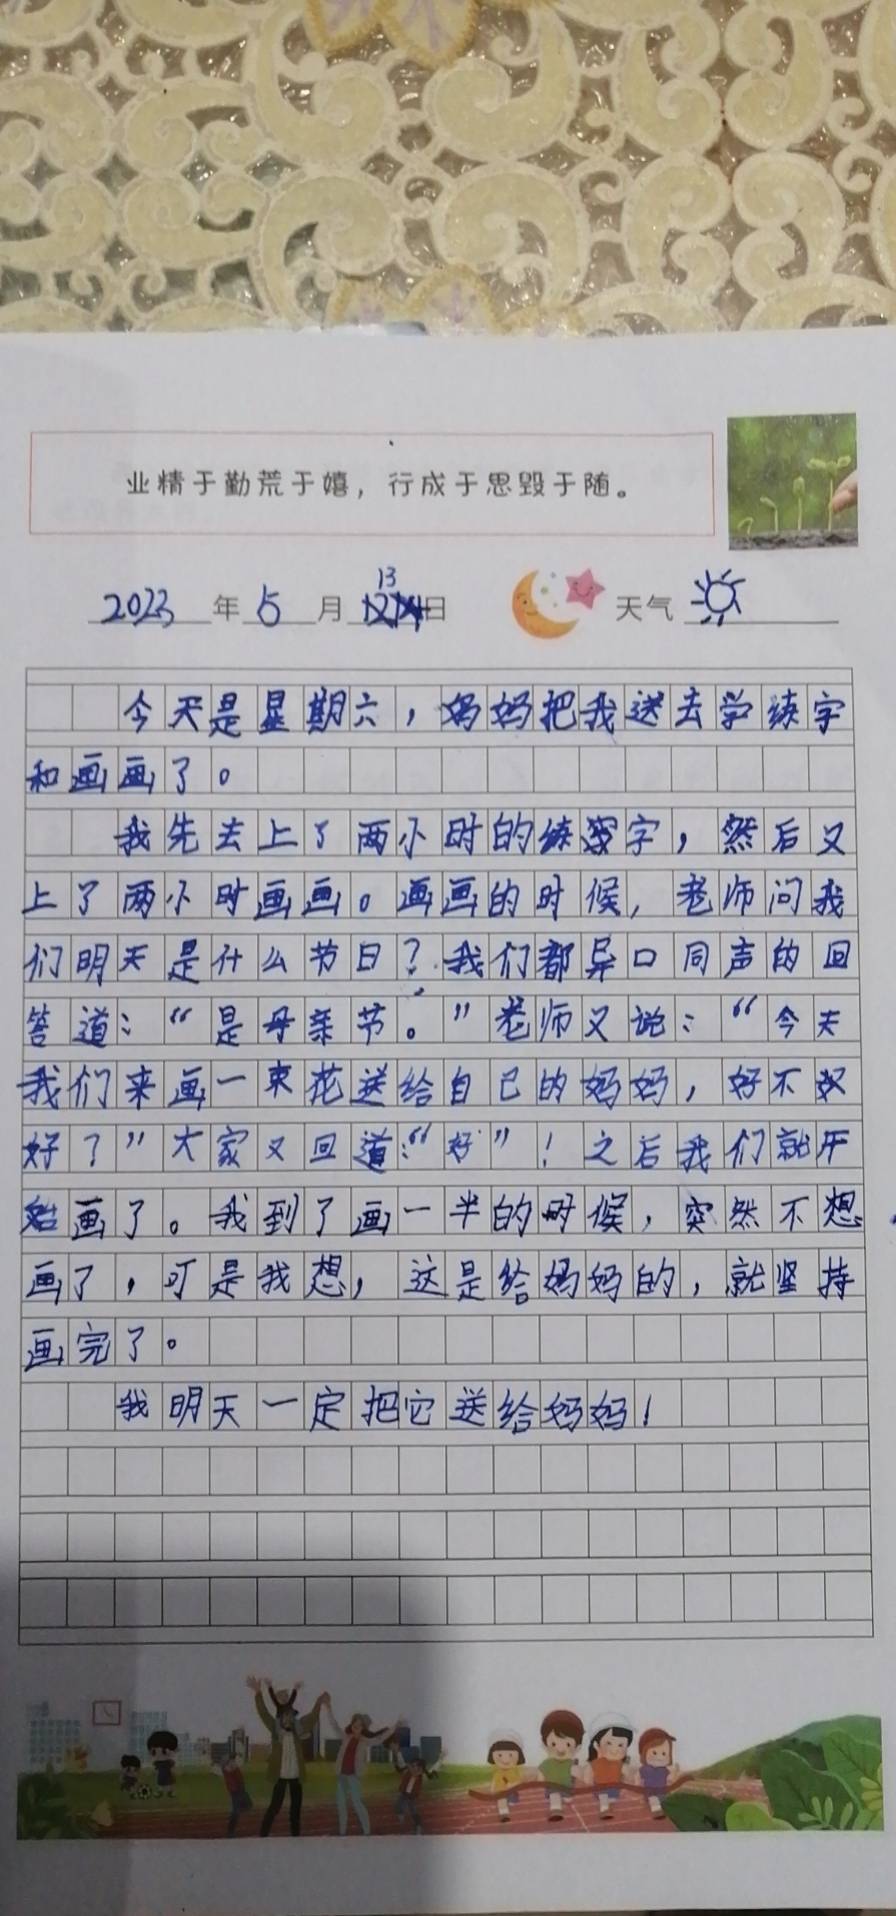 业精于勤荒于嬉，行成于思毁于随。
2023年5月13日 天气
今天是星期六，妈妈把我送去学练字
和画画了。
我先去上了两小时的练字，然后又
上了两小时画画。画画的时候，老师问我
们明天是什么节日？我们都异口同声的回
答道：“是母亲节。”老师又说：“今天
我们来画一束花送给自己的妈妈，好不好
好？”大家又回道：“好”！之后我们就开
始画了。我到了画一半的时候，突然不想
画了，可是我想，这是给妈妈的，就坚持
画完了。
我明天一定把它送给妈妈！